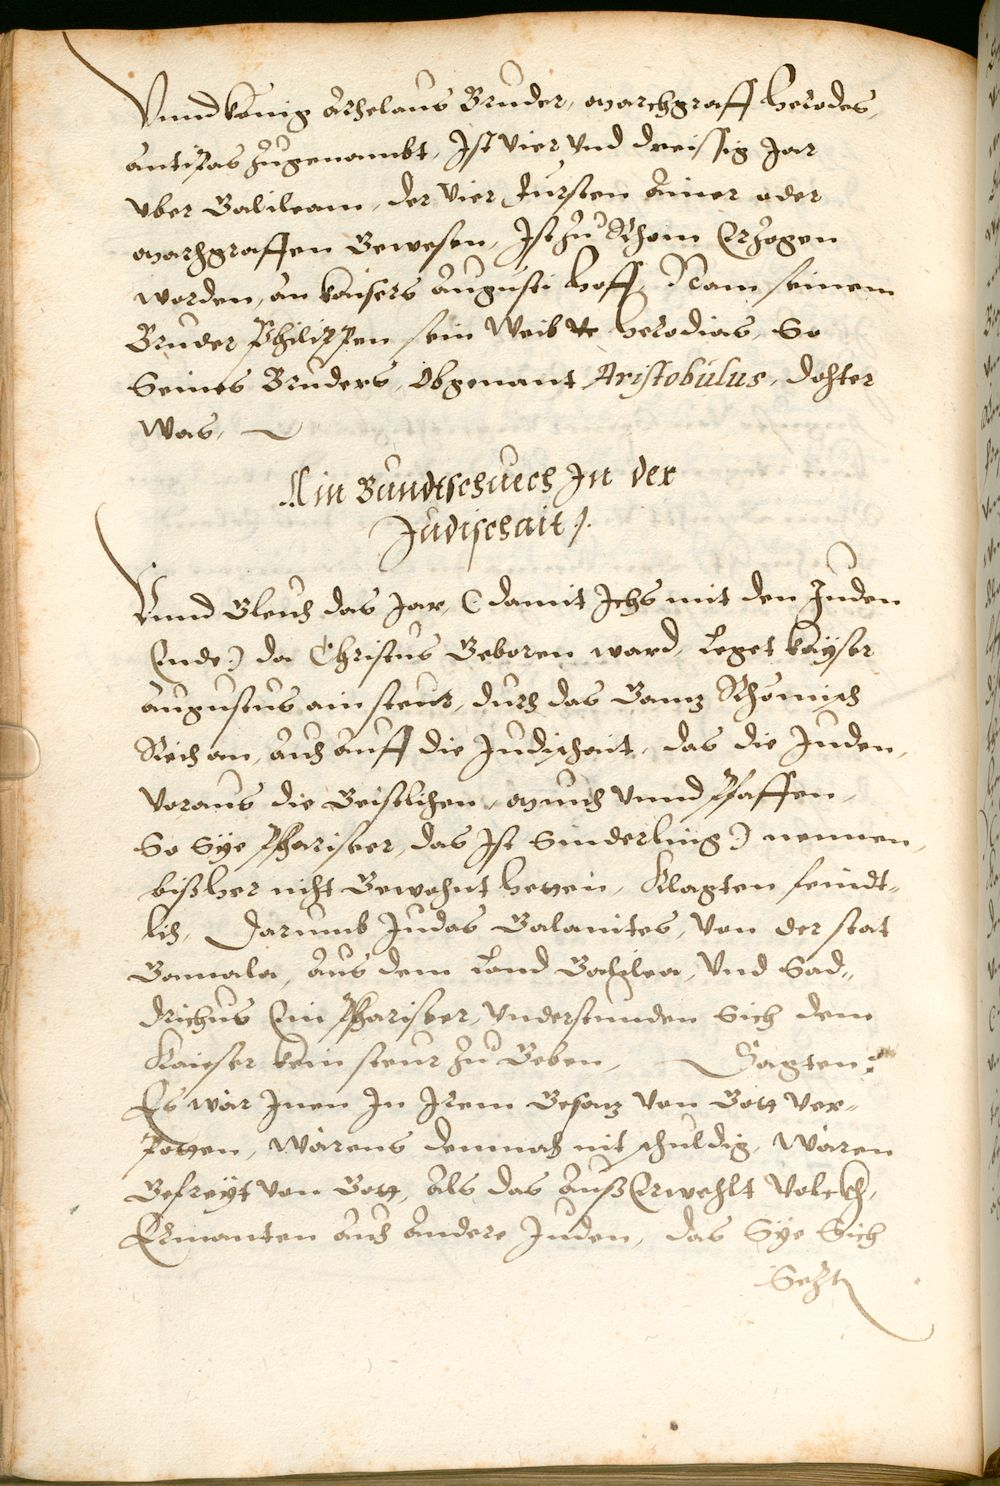 Vnnd König Archelaus Bruder, Marchgraff Herodes,
Antipas Zugenambt, Ist Vier Vnd dreissig Jar
Vber Galileam, der Vier Fursten Ainer oder
Marhgraffen Gewesen, Ist Zu Rhom Erzogen
worden, an Kaisers Augusti Hoff, Nam seinem
Bruder Philippen sein Weib Herodias, So
Seines Bruders, Obgenant Aristobulus, dohter
Was,
Ain Bundtschuech In der
Judischait /.
Vnnd Gleich das Jar, (damit Ichs mit den Juden
Ende:) da Christus Geboren ward, Leget Kayser
Augustus ain steur, durch das Ganz Rhömisch
Reich an, Auch Auff die Judischait, das die Juden,
Voraus die Geistlichen, Münch Vnnd Pfaffen,
So Sÿe Phariseer, das Ist Sinderling:) nennen,
bißher nicht Gewohnt hetten, Klagten feindt-
lich, Darumb Judas Galanites, Von der stat
Gamala, Aus dem Land Galilea, Vnd Sad-
dichus Ein Phariseer, Vnderstunden Sich dem
Kaieser kein steur Zu Geben, Sagten:
Es wär Inen In Irem Gesatz Von Gott Ver-
Potten, Wärens demnach nit schuldig, Wären
Gefreÿt Von Gott, Als das Auß Erwehlt Volckh,
Ermanten Auch Andere Juden, das Sÿe Sich
Sezt